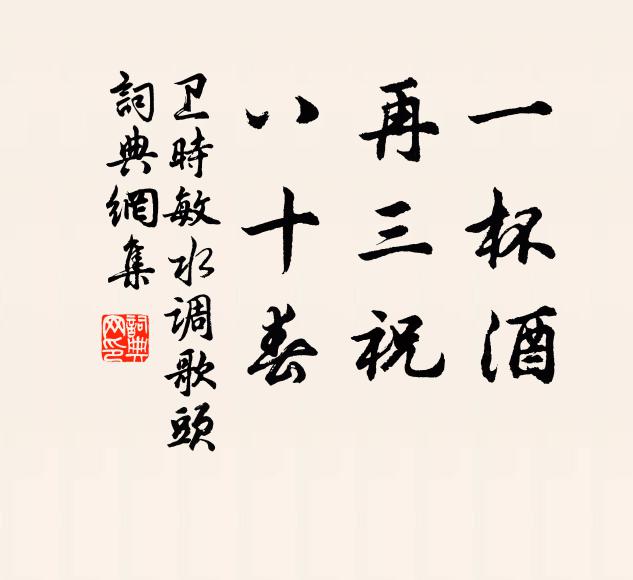 一杯酒
再三祝
八十春
卫時敏水调歌頭
詞典網集
詞典
网印